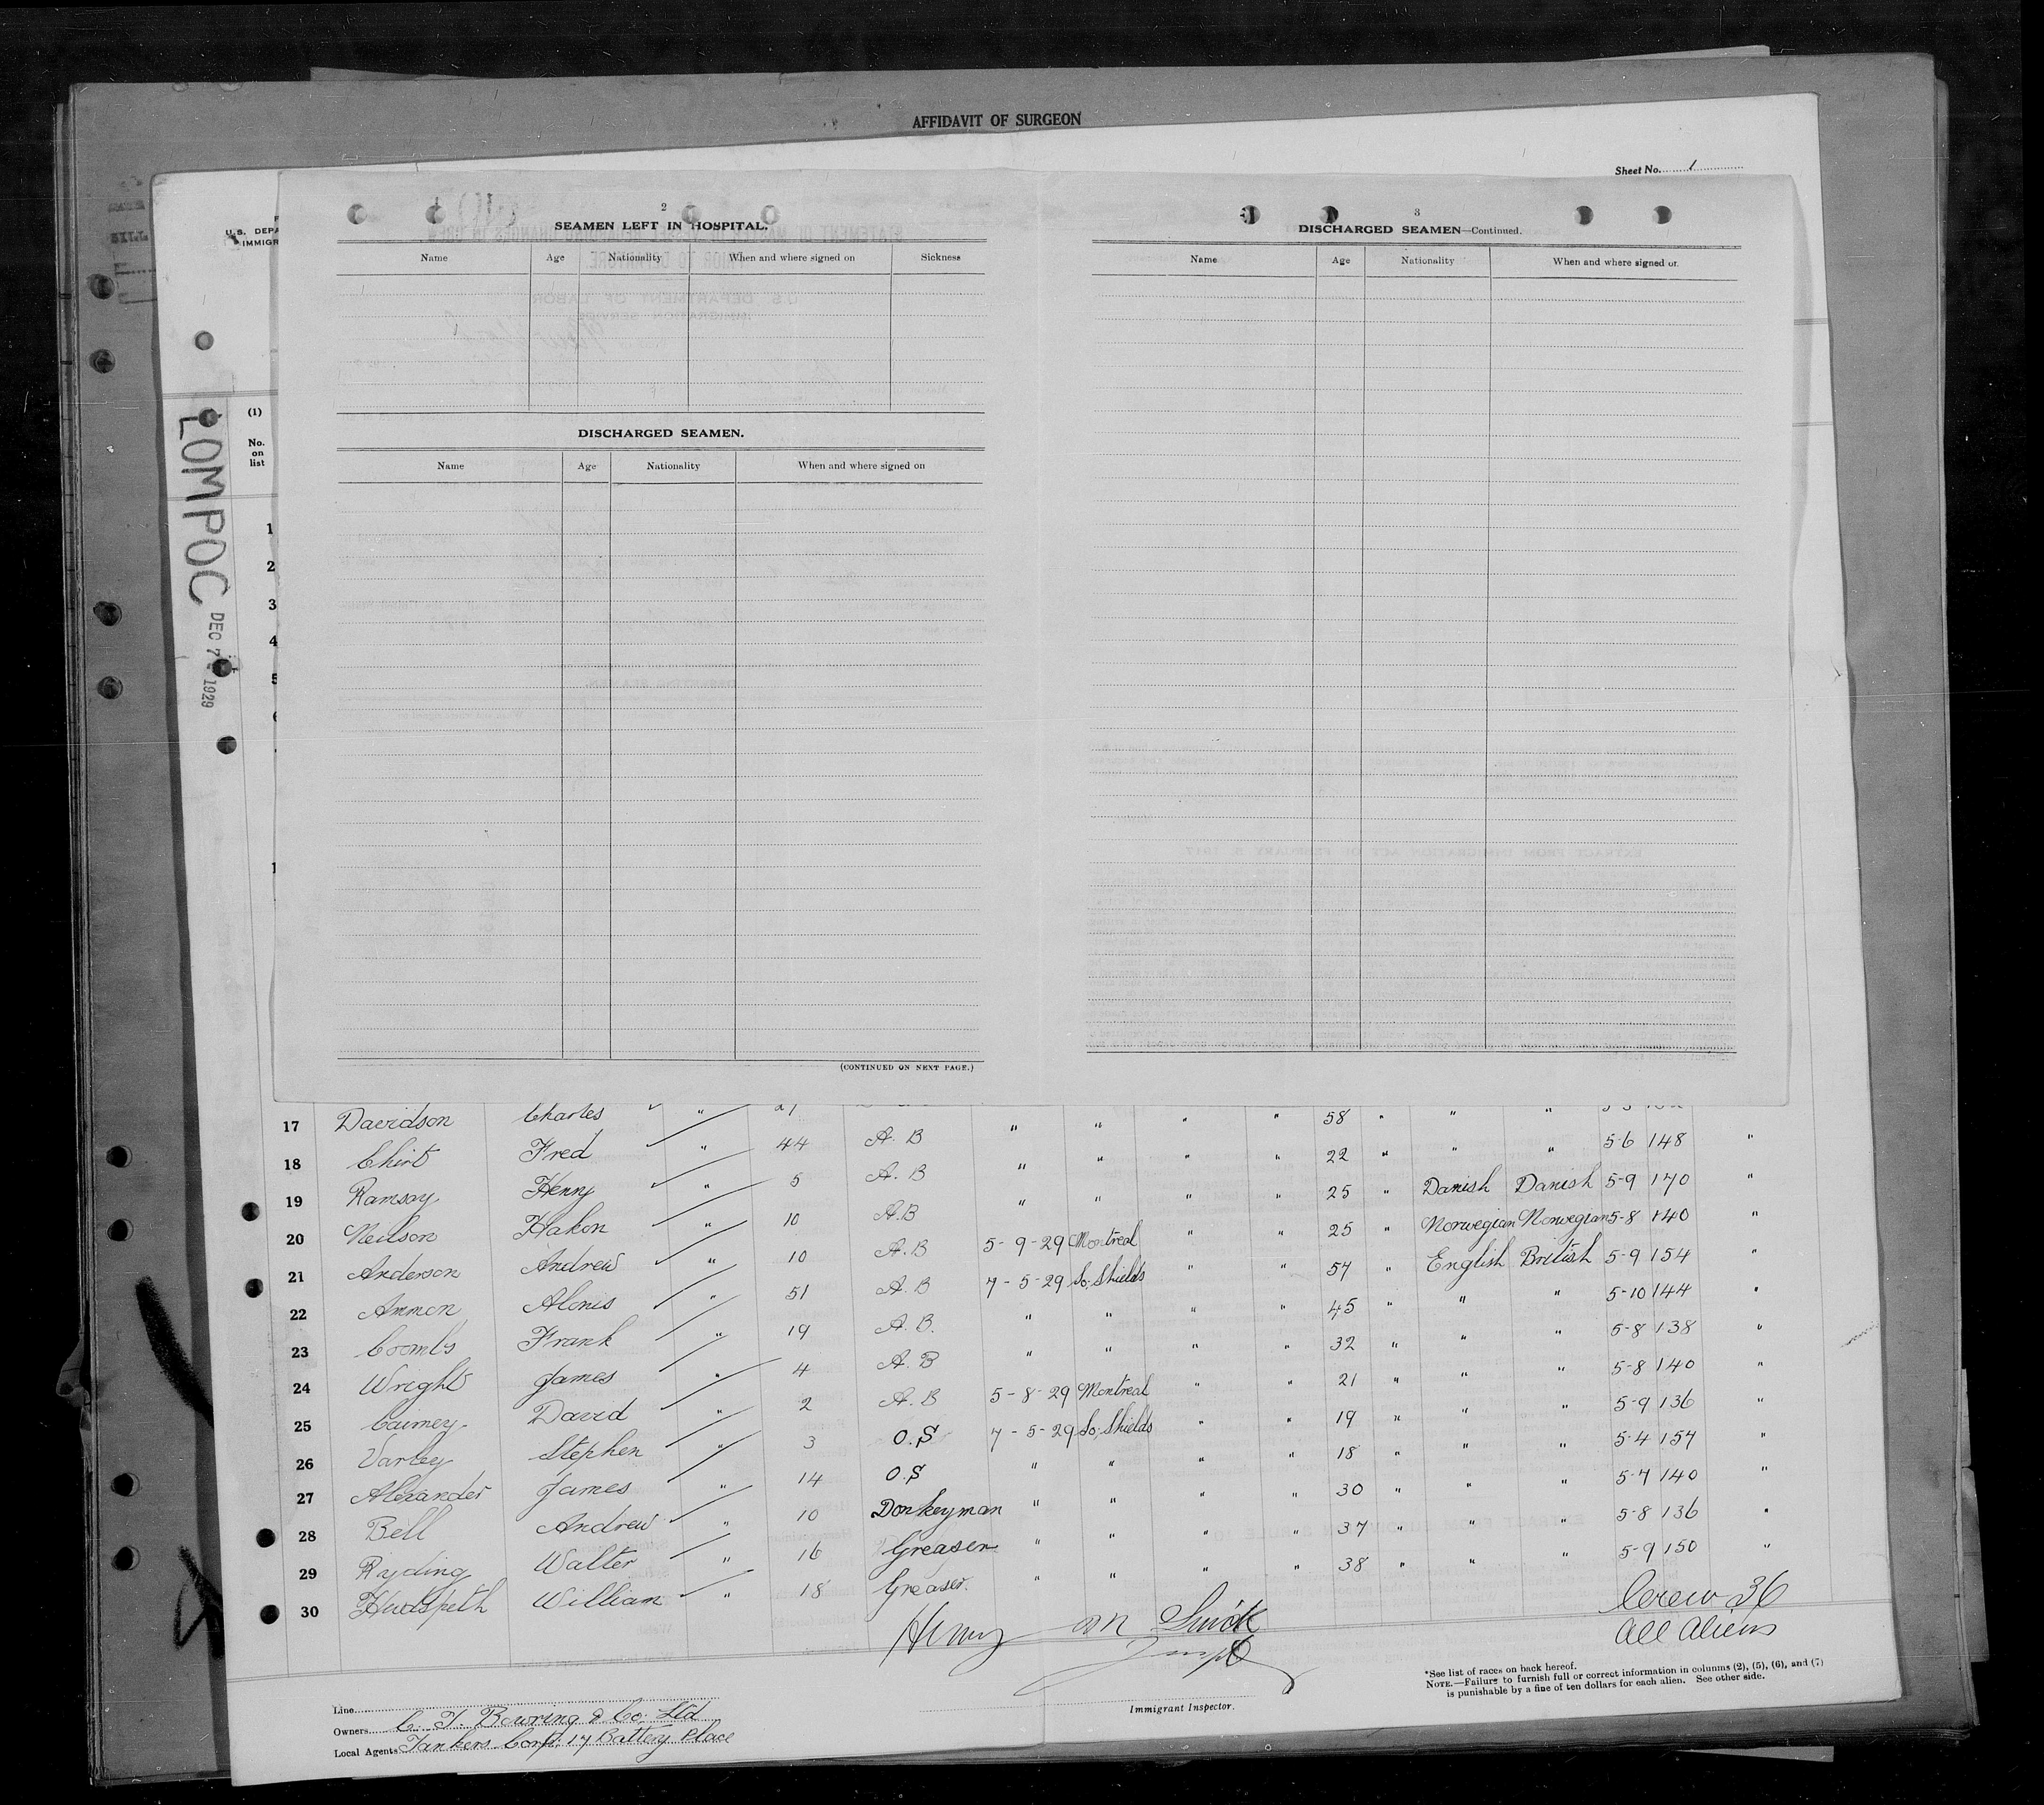 AFFIDAVIT OF SURGEON
Sheet No. 1
U.S. DEPA
IMMIGR
LOMPOC DEC 7 1929
(1)
No.
on
list
1
2
3
4
5
2
SEAMEN LEFT IN HOSPITAL.
Name Age Nationality When and where signed on Sickness
DISCHARGED SEAMEN.
Name Age Nationality When and where signed on
(CONTINUED ON NEXT PAGE.)
3
DISCHARGED SEAMEN—Continued.
Name Age Nationality When and where signed or.
17 Davidson Charles " " " " " 58 " " "
18 Chirt Fred " 44 A. B " " " " 22 " " " 5-6 148 "
19 Ramsay Henry " 5 A. B " " " " 25 " Danish Danish 5-9 170 "
20 Neilson Hakon " 10 A.B " " " " 25 " Norwegian Norwegian 5-8 140 "
21 Anderson Andrew " 10 A. B 5-9-29 Montreal " " 57 " English British 5-9 154 "
22 Ammon Alonis " 51 A. B 7-5-29 So. Shields " " 45 " " " 5-10 144 "
23 Coombs Frank " 19 A. B. " " " " 32 " " " 5-8 138 "
24 Wright James " 4 A. B " " " " 21 " " " 5-8 140 "
25 Cairney David " 2 A. B 5-8-29 Montreal " " 19 " " " 5-9 136 "
26 Varley Stephen " 3 O.S 7-5-29 So. Shields " " 18 " " " 5-4 157 "
27 Alexander James " 14 O.S " " " " 30 " " " 5-7 140 "
28 Bell Andrew " 10 Donkeyman " " " " 37 " " " 5-8 136 "
29 Ryding Walter " 16 Greaser " " " " 38 " " " 5-9 150 "
30 Hudspeth William " 18 Greaser. " " " "
Crew 36
All Aliens
Henry
Immigrant Inspector.
*See list of races on back hereof.
NOTE.—Failure to furnish full or correct information in columns (2), (5), (6), and (7)
is punishable by a fine of ten dollars for each alien. See other side.
Line
Owners C. T. Bowring & Co. Ltd
Local Agents Tankers Corp. 17 Battery Place